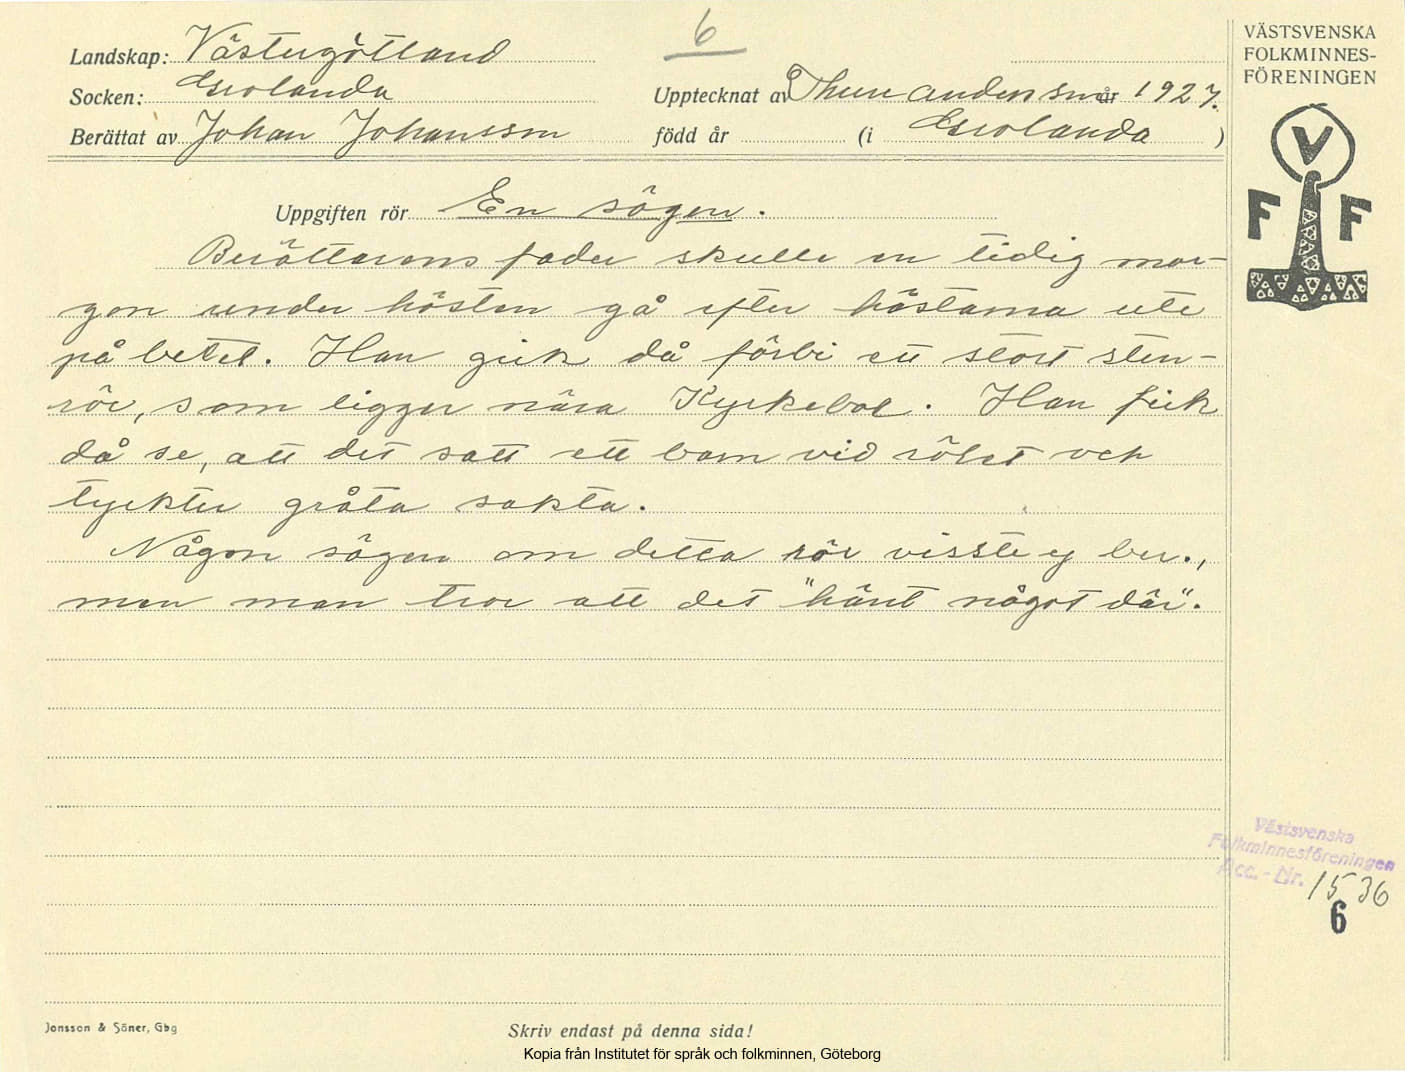 6
Landskap: Västergötland
Socken: Esiolanda
Upptecknat av Thure Anderson år 1927.
Berättat av Johan Johansson född år (i Esiolanda)
VÄSTSVENSKA
FOLKMINNES-
FÖRENINGEN
V
F F
Uppgiften rör En sägen.
Berättarens fader skulle en tidig mor-
gon under hösten gå efter hästarna ute
på betet. Han gick då förbi ett stort sten-
rör, som ligger nära Kyrkebol. Han fick
då se, att det satt ett barn vid röset och
tycktes gråta sakta.
Någon sägen om detta rör visste ej ber.,
men man tror att det "hänt något där".
Västsvenska
Folkminnesföreningen
Acc.-Nr. 1536
6
Jonsson & Söner, Gbg
Skriv endast på denna sida!
Kopia från Institutet för språk och folkminnen, Göteborg